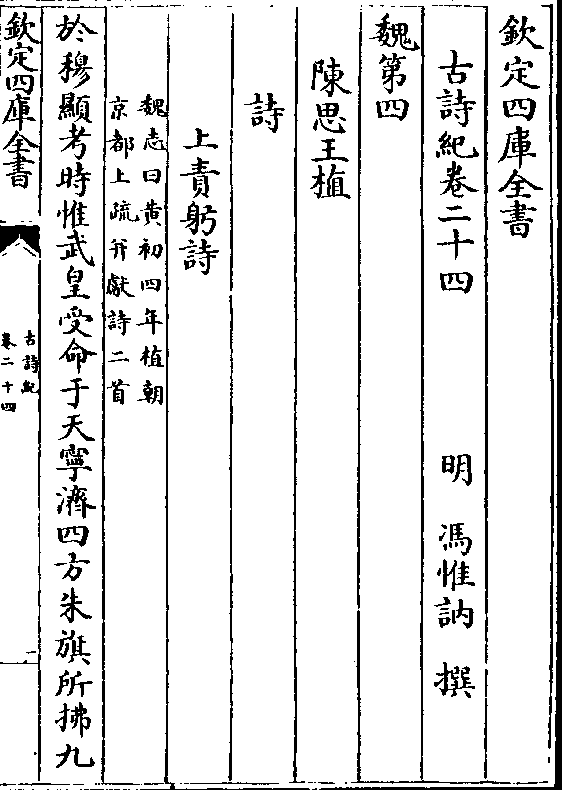 欽定四庫全書
古詩紀卷二十四　明　馮惟訥　撰
魏第四
陳思王植
詩
上責躬詩
魏志曰黃初四年植朝
京都上疏并獻詩二首
於穆顯考時惟武皇受命于天寧濟四方朱旗所拂九
欽定四庫全書
古詩紀
卷二十四
一